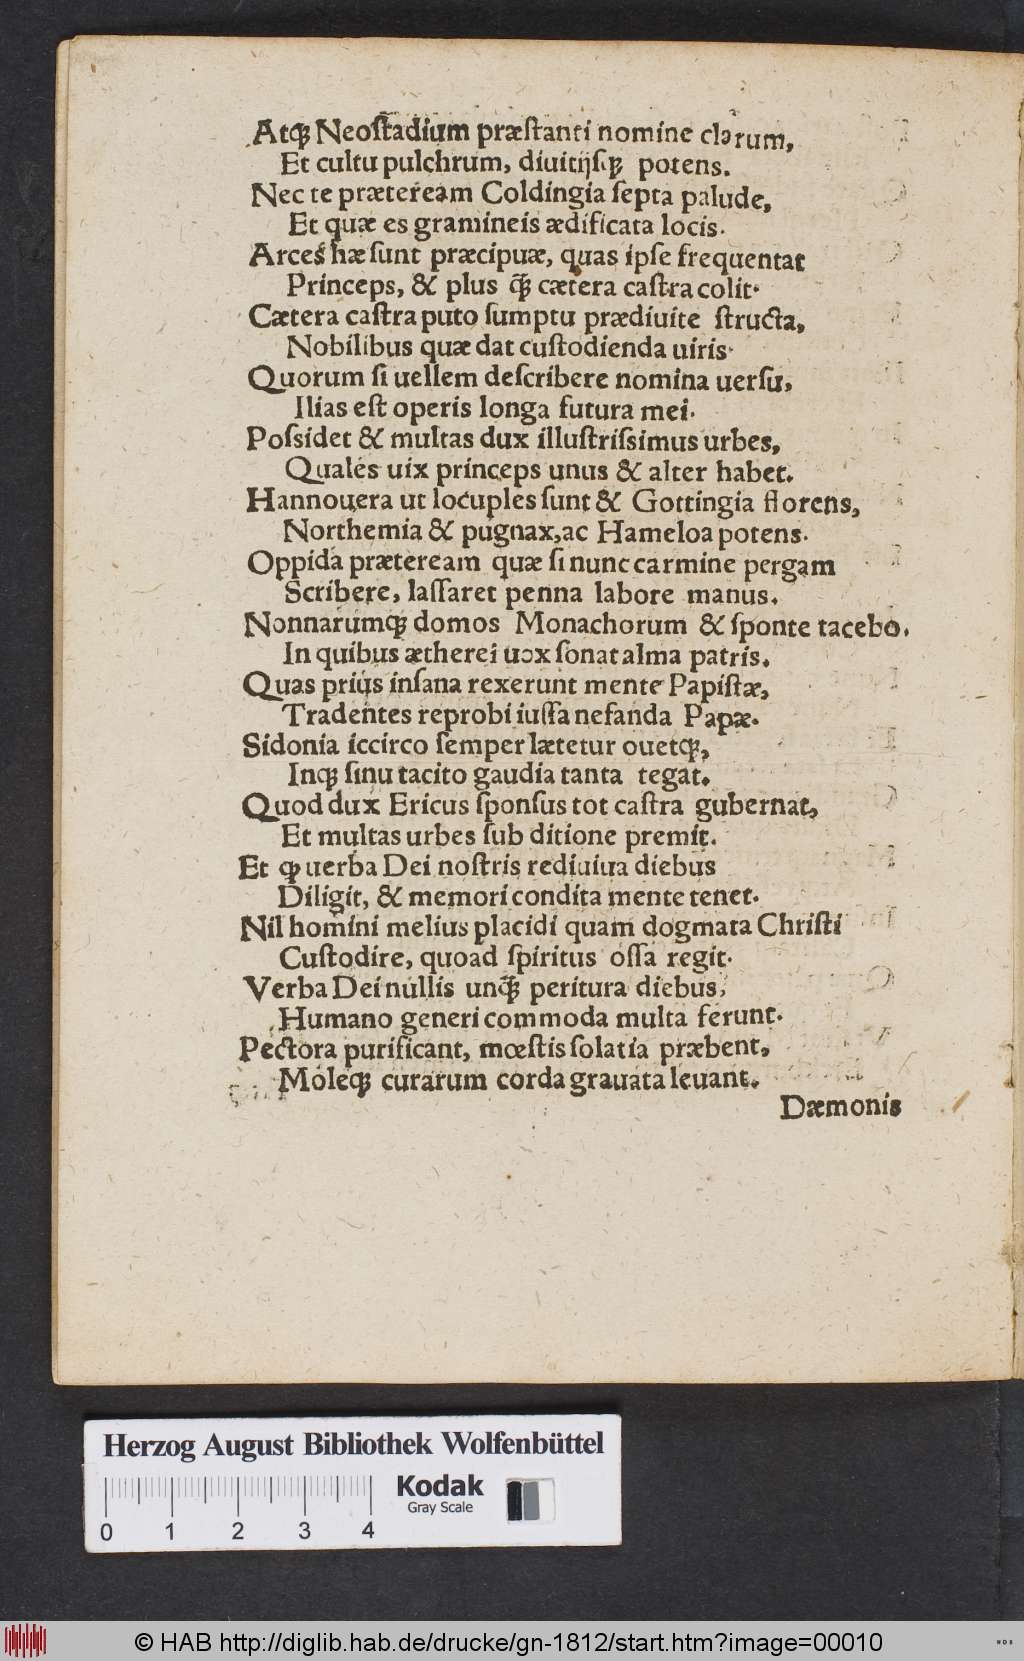 Atq́ꝫ Neoſtadium præſtanti nomine clarum,
Et cultu pulchrum, diuitijſqꝫ potens.
Nec te præteream Coldingia ſepta palude,
Et quæ es gramineis ædificata locis.
Arces hæ ſunt præcipuæ, quas ipſe frequentat
Princeps, & plus q̃ꝫ cætera caſtra colit.
Cætera caſtra puto ſumptu prædiuite ſtructa,
Nobilibus quæ dat cuſtodienda uiris.
Quorum ſi uellem deſcribere nomina uerſu,
Ilias eſt operis longa futura mei.
Poſsidet & multas dux illuſtriſsimus urbes,
Quales uix princeps unus & alter habet.
Hannouera ut locuples ſunt & Gottingia florens,
Northemia & pugnax, ac Hameloa potens.
Oppida præteream quæ ſi nunc carmine pergam
Scribere, laſſaret penna labore manus.
Nonnarumq́ꝫ domos Monachorum & ſponte tacebo.
In quibus ætherei uox ſonat alma patris.
Quas prius inſana rexerunt mente Papiſtæ,
Tradentes reprobi iuſſa nefanda Papæ.
Sidonia iccirco ſemper lætetur ouetq́ꝫ,
Inq́ꝫ ſinu tacito gaudia tanta tegat.
Quod dux Ericus ſponſus tot caſtra gubernat,
Et multas urbes ſub ditione premit.
Et qꝫ uerba Dei noſtris rediuiua diebus
Diligit, & memori condita mente tenet.
Nil homini melius placidi quam dogmata Chriſti
Cuſtodire, quoad ſpiritus oſſa regit.
Verba Dei nullis unq̃ꝫ peritura diebus,
Humano generi commoda multa ferunt.
Pectora purificant, mœſtis ſolatia præbent,
Moleq́ꝫ curarum corda grauata leuant.
Dæmonis
Herzog August Bibliothek Wolfenbüttel
Kodak
Gray Scale
0 1 2 3 4
© HAB http://diglib.hab.de/drucke/gn-1812/start.htm?image=00010